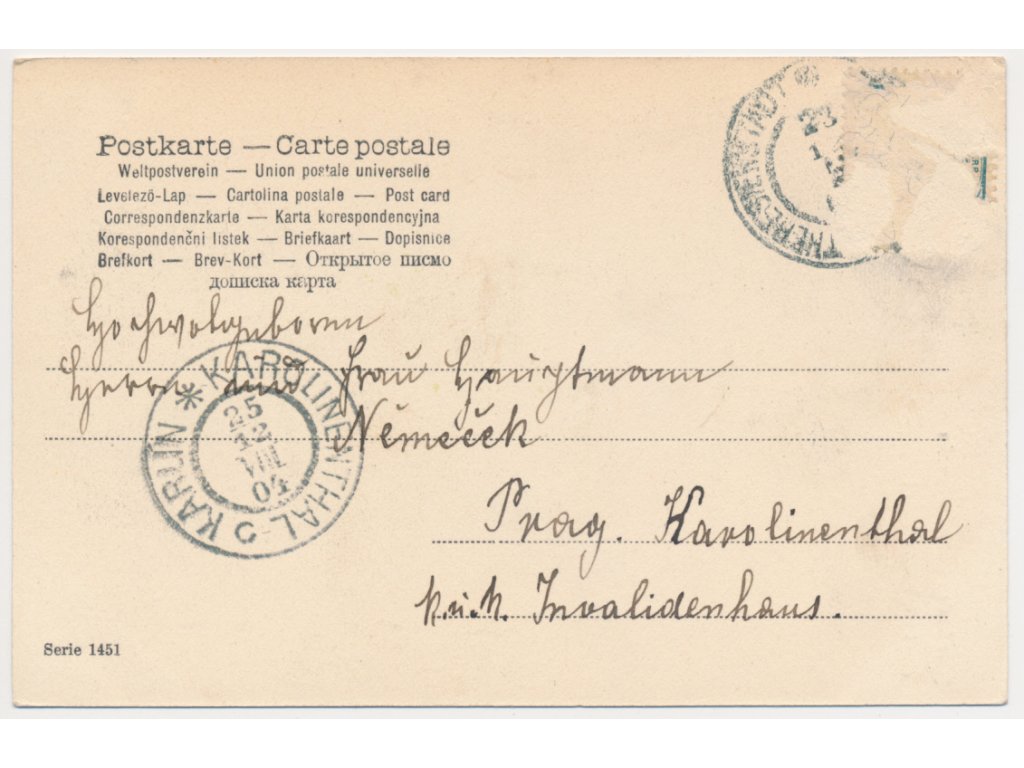 Postkarte — Carte postale
Weltpostverein — Union postale universelle
Levelező-Lap — Cartolina postale — Post card
Correspondenzkarte — Karta korespondencyjna
Korespondenční listek — Briefkaart — Dopisnice
Brefkort — Brev-Kort — Открытое писмо
дописка карта
THERESIENSTADT
23
Hochwolgeboren
Herrn und Frau Hauptmann
Němeček
Prag. Karolinenthal
k. u. k. Invalidenhaus.
KAROLINENTHAL-3 KARLÍN
25
12
VIII
04
Serie 1451